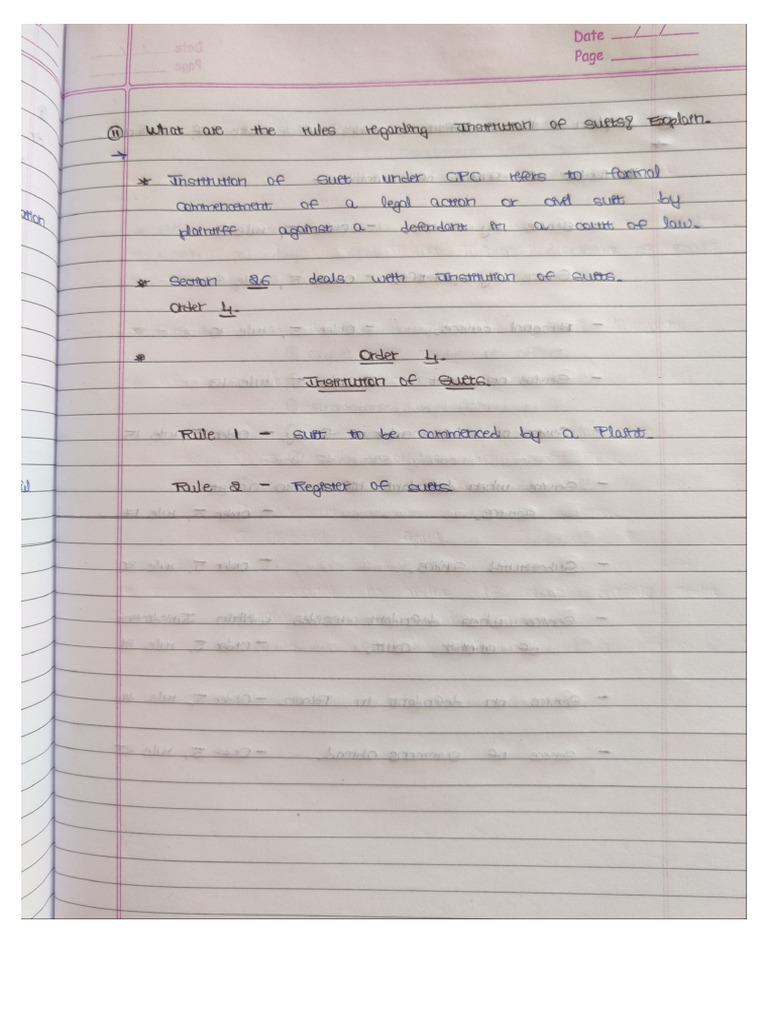 Date __/__/__
Page ______
(11) What are the rules regarding Institution of suits? Explain.
→
* Institution of suit under CPC refers to formal
commencement of a legal action or civil suit by
plaintiff against a defendant in a court of law.
* Section 26 deals with Institution of suits.
Order 4.
* Order 4.
Institution of suits.
Rule 1 - suit to be commenced by a Plaint.
Rule 2 - Register of suits